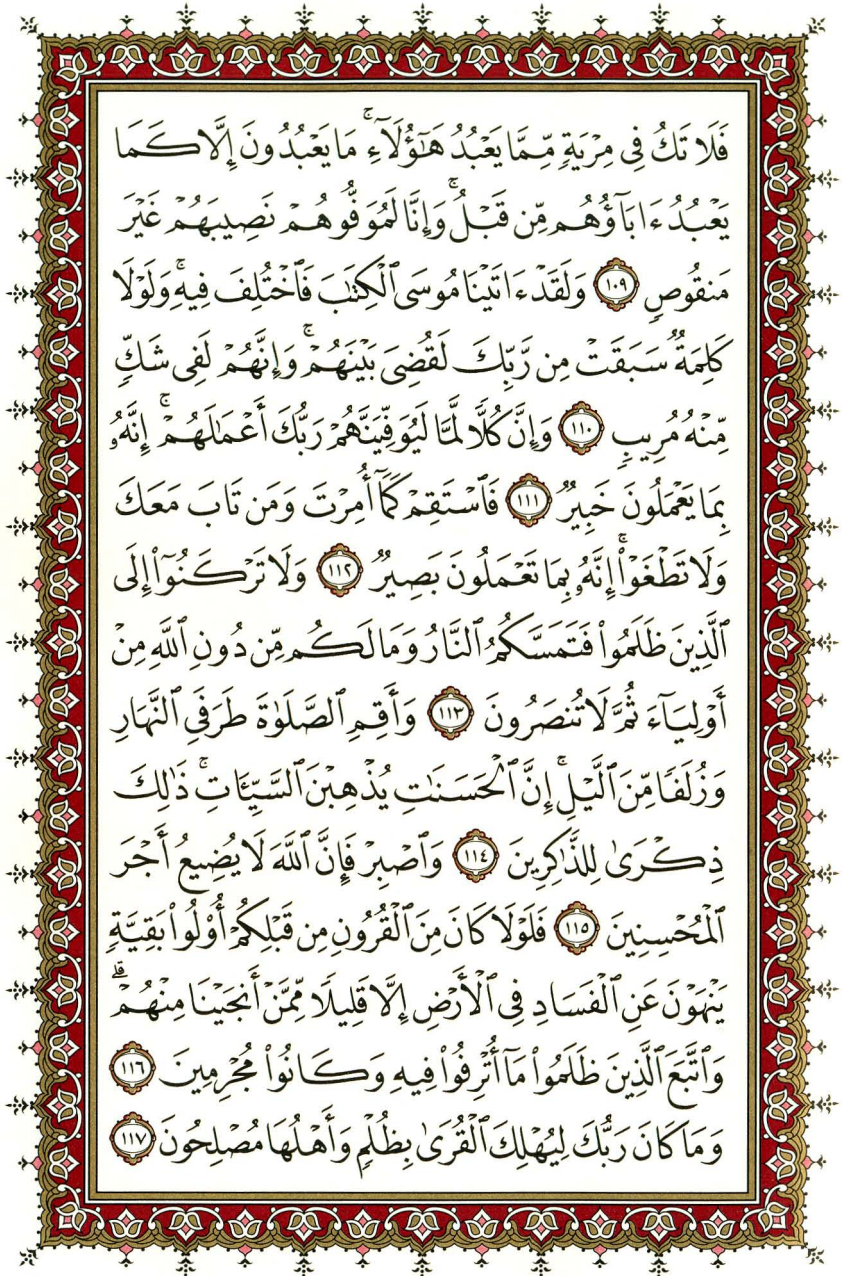 فَلَا تَكُ فِى مِرْيَةٍ مِّمَّا يَعْبُدُ هَٰٓؤُلَآءِ ۚ مَا يَعْبُدُونَ إِلَّا كَمَا
يَعْبُدُ ءَابَآؤُهُم مِّن قَبْلُ ۚ وَإِنَّا لَمُوَفُّوهُمْ نَصِيبَهُمْ غَيْرَ
مَنقُوصٍ ١٠٩ وَلَقَدْ ءَاتَيْنَا مُوسَى ٱلْكِتَٰبَ فَٱخْتُلِفَ فِيهِ ۚ وَلَوْلَا
كَلِمَةٌ سَبَقَتْ مِن رَّبِّكَ لَقُضِىَ بَيْنَهُمْ ۚ وَإِنَّهُمْ لَفِى شَكٍّ
مِّنْهُ مُرِيبٍ ١١٠ وَإِنَّ كُلًّا لَّمَّا لَيُوَفِّيَنَّهُمْ رَبُّكَ أَعْمَٰلَهُمْ ۚ إِنَّهُۥ
بِمَا يَعْمَلُونَ خَبِيرٌ ١١١ فَٱسْتَقِمْ كَمَآ أُمِرْتَ وَمَن تَابَ مَعَكَ
وَلَا تَطْغَوْا۟ ۚ إِنَّهُۥ بِمَا تَعْمَلُونَ بَصِيرٌ ١١٢ وَلَا تَرْكَنُوٓا۟ إِلَى
ٱلَّذِينَ ظَلَمُوا۟ فَتَمَسَّكُمُ ٱلنَّارُ وَمَا لَكُم مِّن دُونِ ٱللَّهِ مِنْ
أَوْلِيَآءَ ثُمَّ لَا تُنصَرُونَ ١١٣ وَأَقِمِ ٱلصَّلَوٰةَ طَرَفَىِ ٱلنَّهَارِ
وَزُلَفًا مِّنَ ٱلَّيْلِ ۚ إِنَّ ٱلْحَسَنَٰتِ يُذْهِبْنَ ٱلسَّيِّـَٔاتِ ۚ ذَٰلِكَ
ذِكْرَىٰ لِلذَّٰكِرِينَ ١١٤ وَٱصْبِرْ فَإِنَّ ٱللَّهَ لَا يُضِيعُ أَجْرَ
ٱلْمُحْسِنِينَ ١١٥ فَلَوْلَا كَانَ مِنَ ٱلْقُرُونِ مِن قَبْلِكُمْ أُو۟لُوا۟ بَقِيَّةٍ
يَنْهَوْنَ عَنِ ٱلْفَسَادِ فِى ٱلْأَرْضِ إِلَّا قَلِيلًا مِّمَّنْ أَنجَيْنَا مِنْهُمْ ۗ
وَٱتَّبَعَ ٱلَّذِينَ ظَلَمُوا۟ مَآ أُتْرِفُوا۟ فِيهِ وَكَانُوا۟ مُجْرِمِينَ ١١٦
وَمَا كَانَ رَبُّكَ لِيُهْلِكَ ٱلْقُرَىٰ بِظُلْمٍ وَأَهْلُهَا مُصْلِحُونَ ١١٧